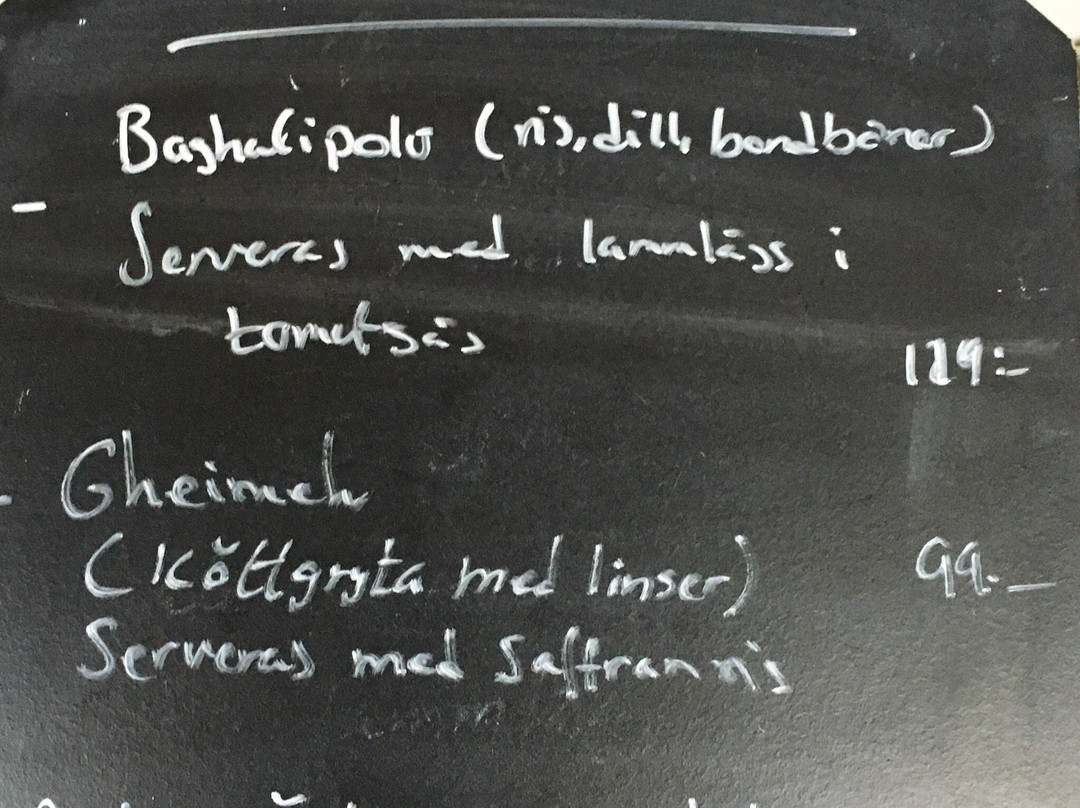 Baghalipolo (ris, dill, bondbönor)
- Serveras med lammlägg i
tomatsås
129:-
- Gheimeh
(Köttgryta med linser) 99:-
Serveras med Saffran ris